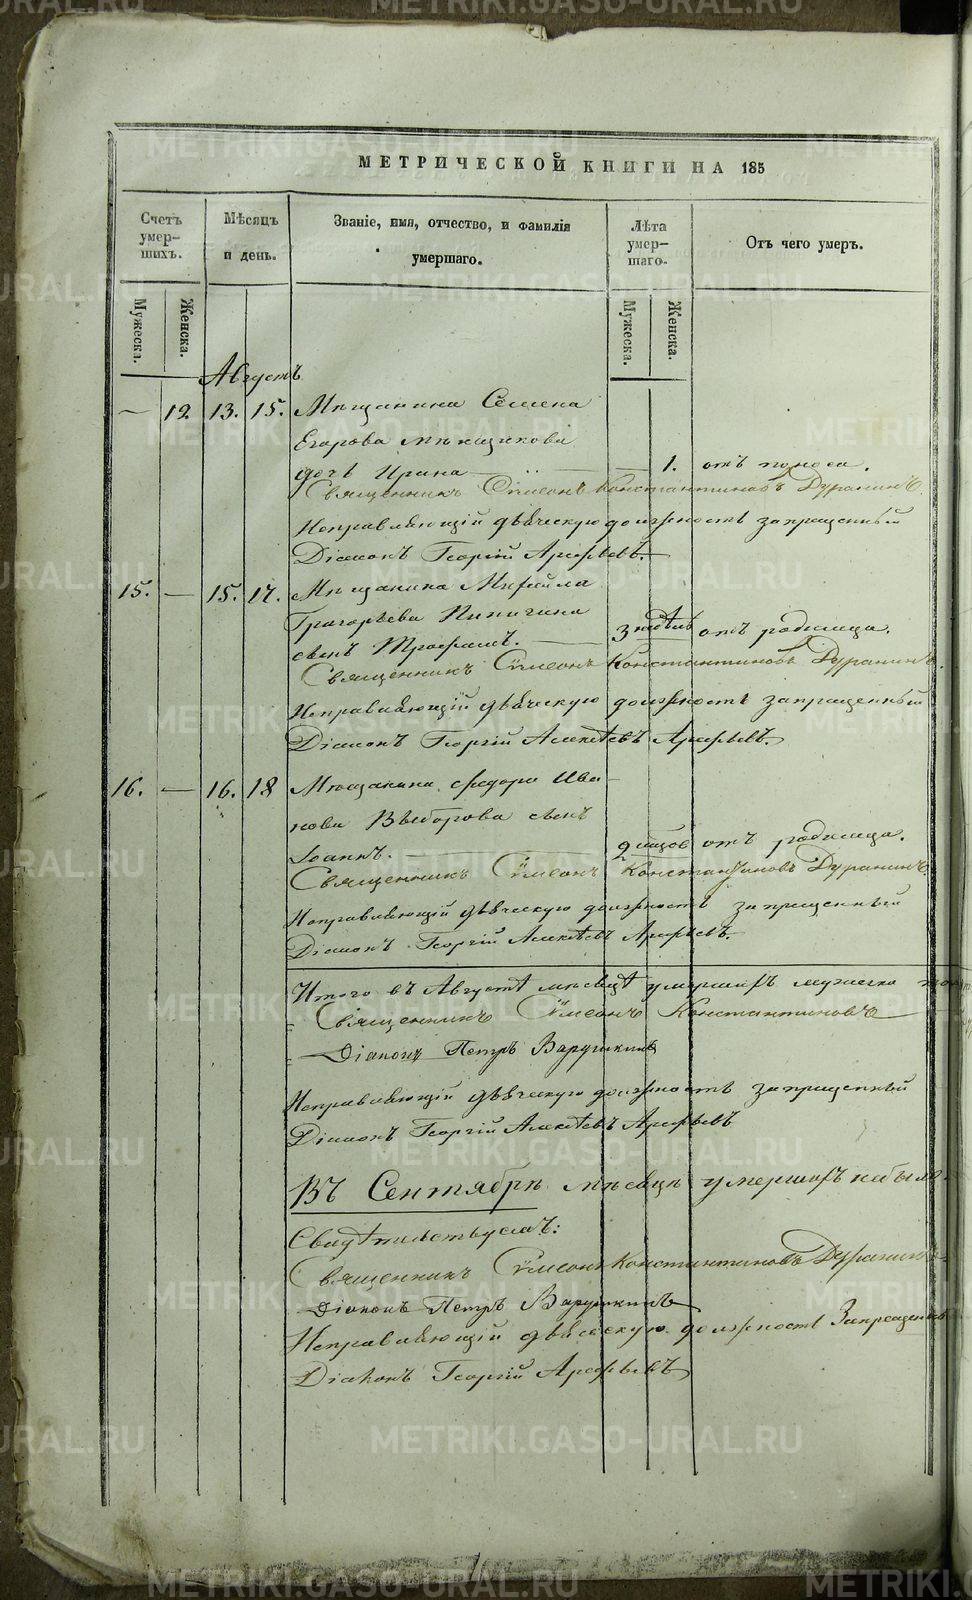 МЕТРИЧЕСКОЙ КНИГИ НА 185
Счетъ умер-шихъ.
Мѣсяцъ и день.
Званіе, имя, отчество, и фамилія умершаго.
Лѣта умер-шаго.
Отъ чего умеръ.
Мужеска.
Женска.
Мужеска.
Женска.
Августъ
— 12. 13. 15. Мѣщанина Семена
Егорова
дочь Ирина — 1. отъ поноса.
Священникъ Сѵмеонъ Константиновъ Дуранинъ
Исправляющій дьяческую должность запрещенный
Діаконъ Георгій Арефьевъ.
15. — 15. 17. Мѣщанина Михайла
Григорьева Пичигина
сынъ Трофимъ. — 3 недѣль отъ родимца.
Священникъ Сѵмеонъ Константиновъ Дуранинъ.
Исправляющій дьяческую должность запрещенный
Діаконъ Георгій Алексѣевъ Арефьевъ.
16. — 16. 18 Мѣщанина Федора Ива-
нова Выборова сынъ
Іоаннъ. — отъ родимца.
Священникъ Сѵмеонъ Константиновъ Дуранинъ.
Исправляющій дьяческую должность запрещенный
Діаконъ Георгій Алексѣевъ Арефьевъ.
Итого въ Августѣ мѣсяцѣ умершихъ мужеска
Священникъ Сѵмеонъ Константиновъ
Діаконъ Петръ Варушкинъ
Исправляющій дьяческую должность запрещенный
Діаконъ Георгій Алексѣевъ Арефьевъ
Въ Сентябрѣ мѣсяцѣ умершихъ небыло.
Свидѣтельствуемъ:
Священникъ Сѵмеонъ Константиновъ Дуранинъ
Діаконъ Петръ Варушкинъ
Исправляющій дьяческую должность Запрещенный
Діаконъ Георгій Арефьевъ
METRIKI.GASO-URAL.RU